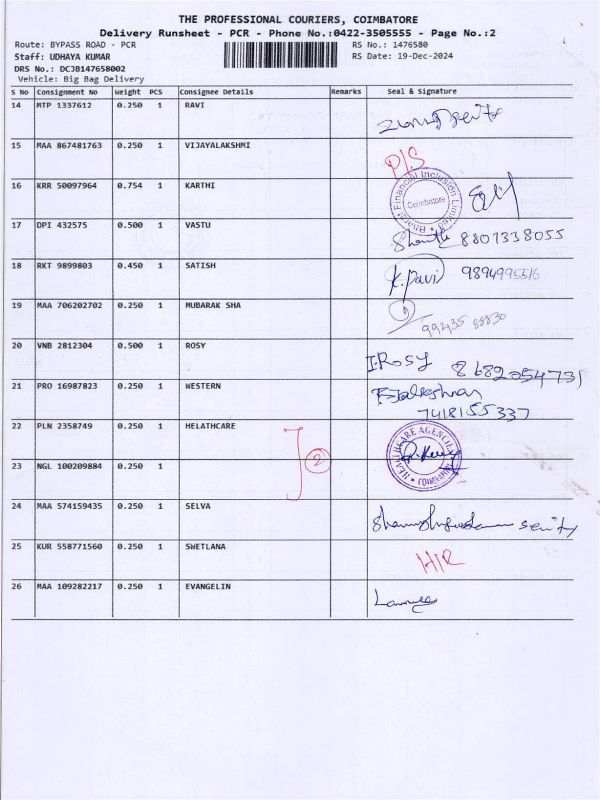 THE PROFESSIONAL COURIERS, COIMBATORE
Delivery Runsheet - PCR - Phone No.:0422-3505555 - Page No.:2
Route: BYPASS ROAD - PCR
RS No.: 1476580
Staff: UDHAYA KUMAR
RS Date: 19-Dec-2024
DRS No.: DCJB147658002
Vehicle: Big Bag Delivery
S No Consignment No Weight PCS Consignee Details Remarks Seal & Signature
14 MTP 1337612 0.250 1 RAVI
15 MAA 867481763 0.250 1 VIJAYALAKSHMI P/S
16 KRR 50097964 0.754 1 KARTHI
Bharat Financial Inclusion Limited
Coimbatore
17 DPI 432575 0.500 1 VASTU 8807338055
18 RKT 9899803 0.450 1 SATISH K. Pavi 9894995516
19 MAA 706202702 0.250 1 MUBARAK SHA 99435 88830
20 VNB 2812304 0.500 1 ROSY I. Rosy 8682054731
21 PRO 16987823 0.250 1 WESTERN
7418155337
22 PLN 2358749 0.250 1 HELATHCARE
HEALTHCARE AGENCIES
COIMBATORE
2
23 NGL 100209884 0.250 1
24 MAA 574159435 0.250 1 SELVA
25 KUR 558771560 0.250 1 SWETLANA H/R
26 MAA 109282217 0.250 1 EVANGELIN